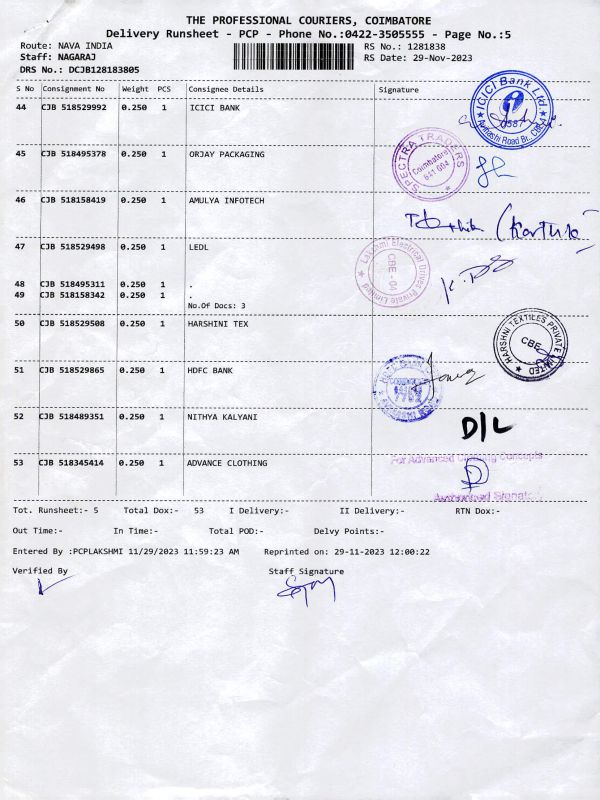 THE PROFESSIONAL COURIERS, COIMBATORE
Delivery Runsheet - PCP - Phone No.:0422-3505555 - Page No.:5
Route: NAVA INDIA
RS No.: 1281838
Staff: NAGARAJ
RS Date: 29-Nov-2023
DRS No.: DCJB128183805
S No Consignment No Weight PCS Consignee Details Signature
44 CJB 518529992 0.250 1 ICICI BANK
ICICI Bank Ltd.
Avinashi Road Br., CBE
45 CJB 518495378 0.250 1 ORJAY PACKAGING
SPECTRA TRADERS
Coimbatore
641 004
46 CJB 518158419 0.250 1 AMULYA INFOTECH
47 CJB 518529498 0.250 1 LEDL
Lakshmi Electrical Drives Private Limited
CBE - 04
48 CJB 518495311 0.250 1 .
49 CJB 518158342 0.250 1 .
No.Of Docs: 3
50 CJB 518529508 0.250 1 HARSHINI TEX
HARSHNI TEXTILES PRIVATE LIMITED
CBE
51 CJB 518529865 0.250 1 HDFC BANK
52 CJB 518489351 0.250 1 NITHYA KALYANI
D/L
53 CJB 518345414 0.250 1 ADVANCE CLOTHING
For Advanced Clothing Concepts
Authorised Signat
Tot. Runsheet:- 5 Total Dox:- 53 I Delivery:- II Delivery:- RTN Dox:-
Out Time:- In Time:- Total POD:- Delvy Points:-
Entered By :PCPLAKSHMI 11/29/2023 11:59:23 AM Reprinted on: 29-11-2023 12:00:22
Verified By Staff Signature